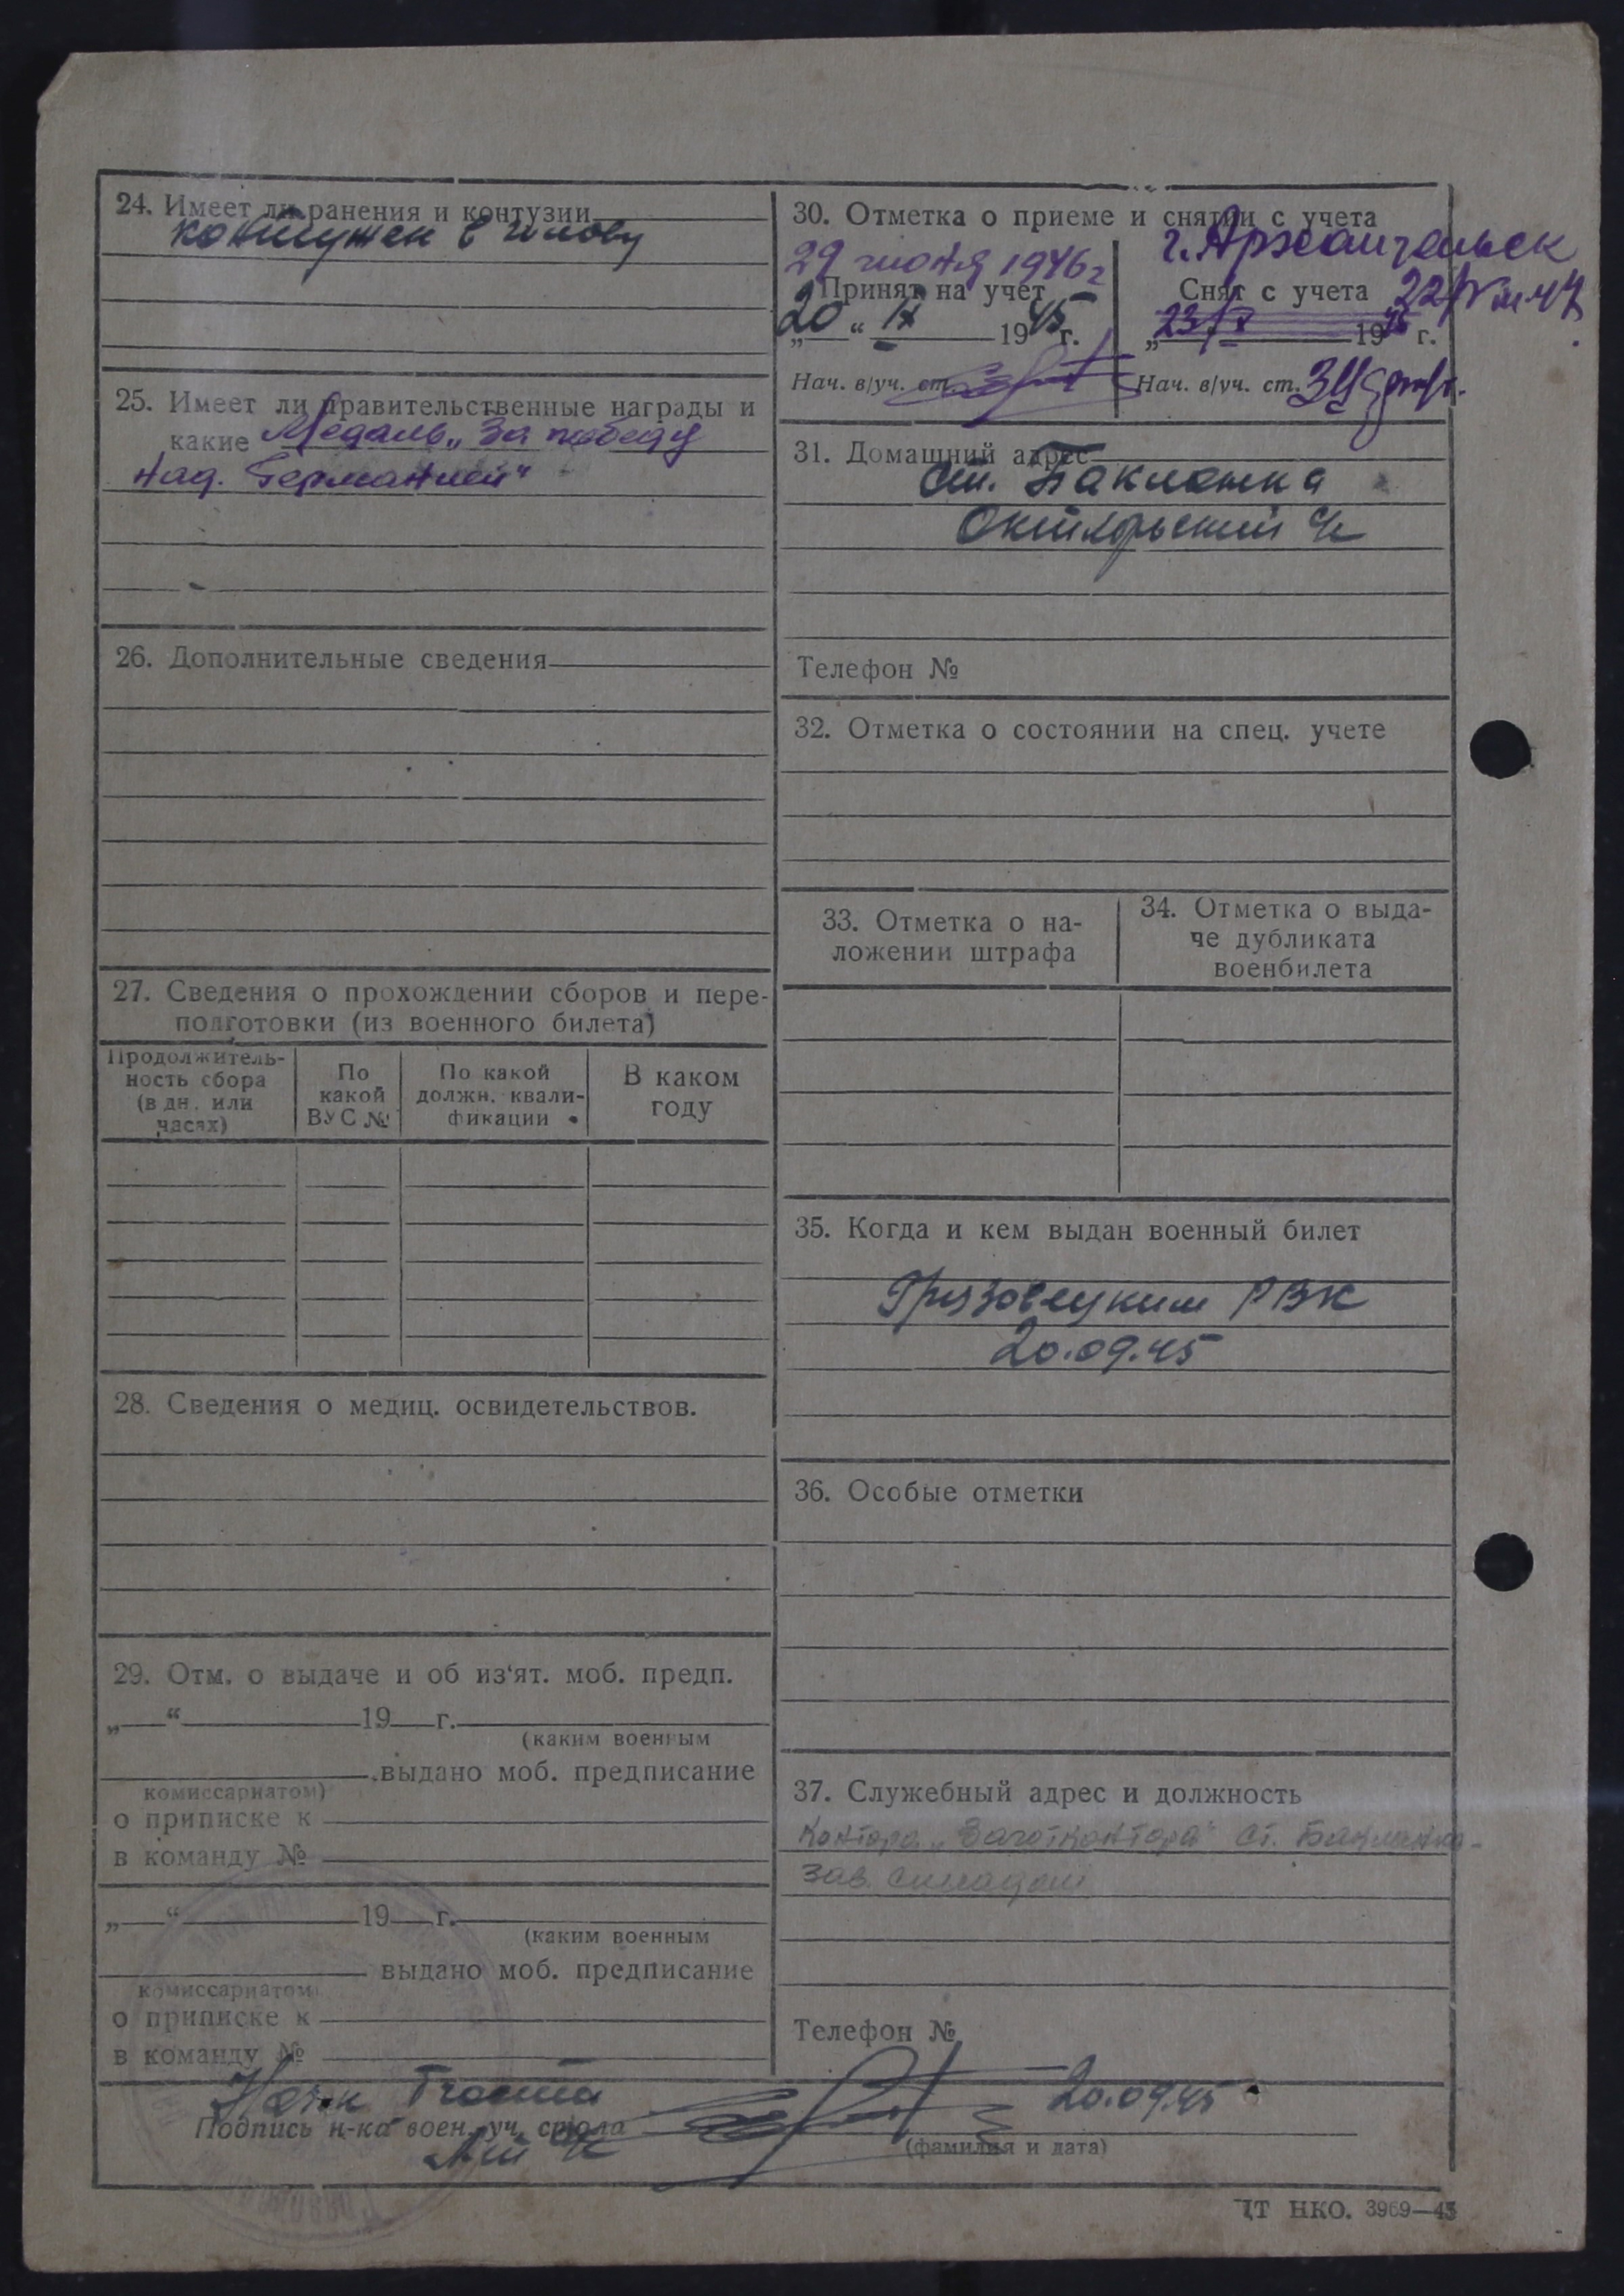 24. Имеет ли ранения и контузии
контужен в голову
25. Имеет ли правительственные награды и
какие Медаль „За победу
над. Германией“
26. Дополнительные сведения
27. Сведения о прохождении сборов и пере-
подготовки (из военного билета)
Продолжитель-
ность сбора
(в дн. или
часах)
По
какой
ВУС №
По какой
должн. квали-
фикации
В каком
году
28. Сведения о медиц. освидетельствов.
29. Отм. о выдаче и об из‘ят. моб. предп.
„ “ 19 г.
(каким военным
выдано моб. предписание
комиссариатом)
о приписке к
в команду №
„ “ 19 г.
(каким военным
выдано моб. предписание
комиссариатом)
о приписке к
в команду №
30. Отметка о приеме и снятии с учета
29 июня 1946 г
Принят на учет
„20“ IX 1945 г.
Нач. в/уч. ст.
г. Архангельск
Снят с учета 22/IV 47
„23/X 1945 г.
Нач. в/уч. ст.
31. Домашний адрес
ст. Бакланка
Октябрьский с/с
Телефон №
32. Отметка о состоянии на спец. учете
33. Отметка о на-
ложении штрафа
34. Отметка о выда-
че дубликата
военбилета
35. Когда и кем выдан военный билет
Грязовецким РВК
20.09.45
36. Особые отметки
37. Служебный адрес и должность
контора „Заготконтора“ ст. Бакланка-
зав. складом
Телефон №
Нач-к 1 части
Подпись н-ка воен. уч. стола
20.09.45
(фамилия и дата)
ЦТ НКО. 3969—45